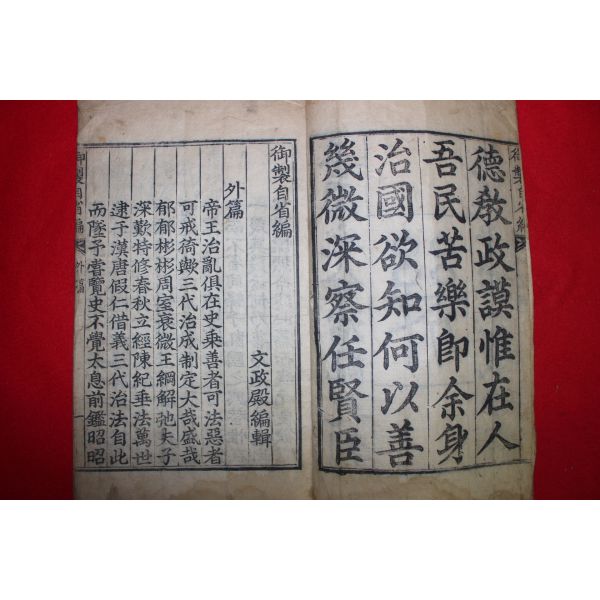 御製自省編
德教政謨惟在人
吾民苦樂即余身
治國欲知何以善
幾微深察任賢臣
御製自省編
文政殿編輯
外篇
帝王治亂俱在史乘善者可法惡者
可戒猗歟三代治成制定大哉盛哉
郁郁彬彬周室衰微王綱解弛夫子
深歎特修春秋立經陳紀垂法萬世
逮于漢唐假仁借義三代治法自此
而墜予嘗覽史不覺太息前鑑昭昭
御製自省編 外篇 一